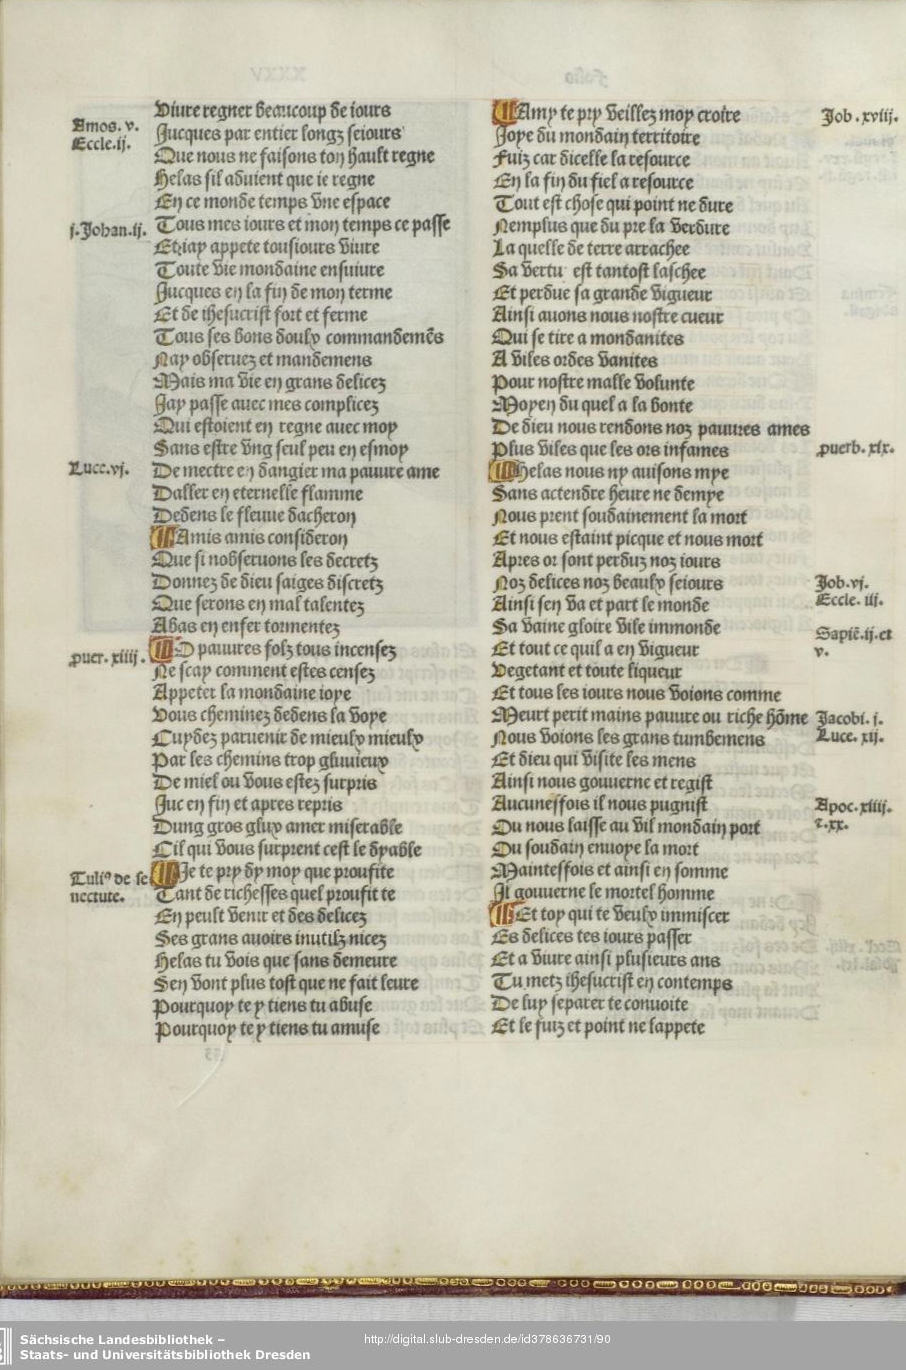 Amos. v.
Eccle.ij.
j.Johan.ij.
Luce.vj.
puer. xiiij.
Tuli⁹ de se
nectute.
Viure regner beaucoup de iours
Jucques par entier longz seiours
Que nous ne faisons ton hault regne
Helas sil aduient que ie regne
En ce monde temps vne espace
Tous mes iours et mon temps ce passe
Et iay appete tousiours viure
Toute vie mondaine ensuiure
Jucques en la fin de mon terme
Et de ihesucrist fort et ferme
Tous ses bons doulx commandemēs
Nay obseruez et mandemens
Mais ma vie en grans delicez
Jay passe auec mes complicez
Qui estoient en regne auec moy
Sans estre vng seul peu en esmoy
De mectre en dangier ma pauure ame
Daller en eternelle flamme
Dedens le fleuue dacheron
¶ Amis amis consideron
Que si nobseruons les decretz
Donnez de dieu saiges discretz
Que serons en mal talentez
Abas en enfer tormentez
¶ O pauures folz tous incensez
Ne scay comment estes censez
Appeter la mondaine ioye
Vous cheminez dedens la voye
Cuydez paruenir de mieulx mieulx
Par les chemins trop gluuieux
De miel ou vous estez surpris
Juc en fin et apres repris
Dung gros glux amer miserable
Cil qui vous surprent cest le dyable
¶ Je te pry dy moy que proufite
Tant de richesses quel proufit te
En peult venir et des delicez
Ses grans auoirs inutilz nicez
Helas tu vois que sans demeure
Sen vont plus tost que ne fait leure
Pourquoy te y tiens tu abuse
Pourquoy te y tiens tu amuse
¶ Amy te pry veillez moy croire
Joye du mondain territoire
Fuiz car dicelle la resource
En la fin du fiel a resource
Tout est chose qui point ne dure
Nemplus que du pre la verdure
La quelle de terre arrachee
Sa vertu est tantost laschee
Et perdue sa grande vigueur
Ainsi auons nous nostre cueur
Qui se tire a mondanites
A viles ordes vanites
Pour nostre malle volunte
Moyen du quel a la bonte
De dieu nous rendons noz pauures ames
Plus viles que les ors infames
¶ Helas nous ny auisons mye
Sans actendre heure ne demye
Nous prent soudainement la mort
Et nous estaint picque et nous mort
Apres or sont perduz noz iours
Noz delices noz beaulx seiours
Ainsi sen va et part le monde
Sa vaine gloire vile immonde
Et tout ce quil a en vigueur
Vegetant et toute liqueur
Et tous les iours nous voions comme
Meurt perit mains pauure ou riche hōme
Nous voions les grans tumbemens
Et dieu qui visite les mens
Ainsi nous gouuerne et regist
Aucuneffois il nous pugnist
Ou nous laisse au vil mondain port
Ou soudain enuoye la mort
Mainteffois et ainsi en somme
Il gouuerne le mortel homme
¶ Et toy qui te veulx immiscer
Es delices tes iours passer
Et a viure ainsi plusieurs ans
Tu metz ihesucrist en contemps
De luy separer te conuoite
Et le fuiz et point ne lappete
Job. xviij.
puerb. xix.
Job. vj.
Eccle. iij.
Sapiē.ij.et
v.
Jacobi. j.
Luce. xij.
Apoc.xiiij.
⁊.xx.
Sächsische Landesbibliothek –
Staats- und Universitätsbibliothek Dresden
http://digital.slub-dresden.de/id378636731/90